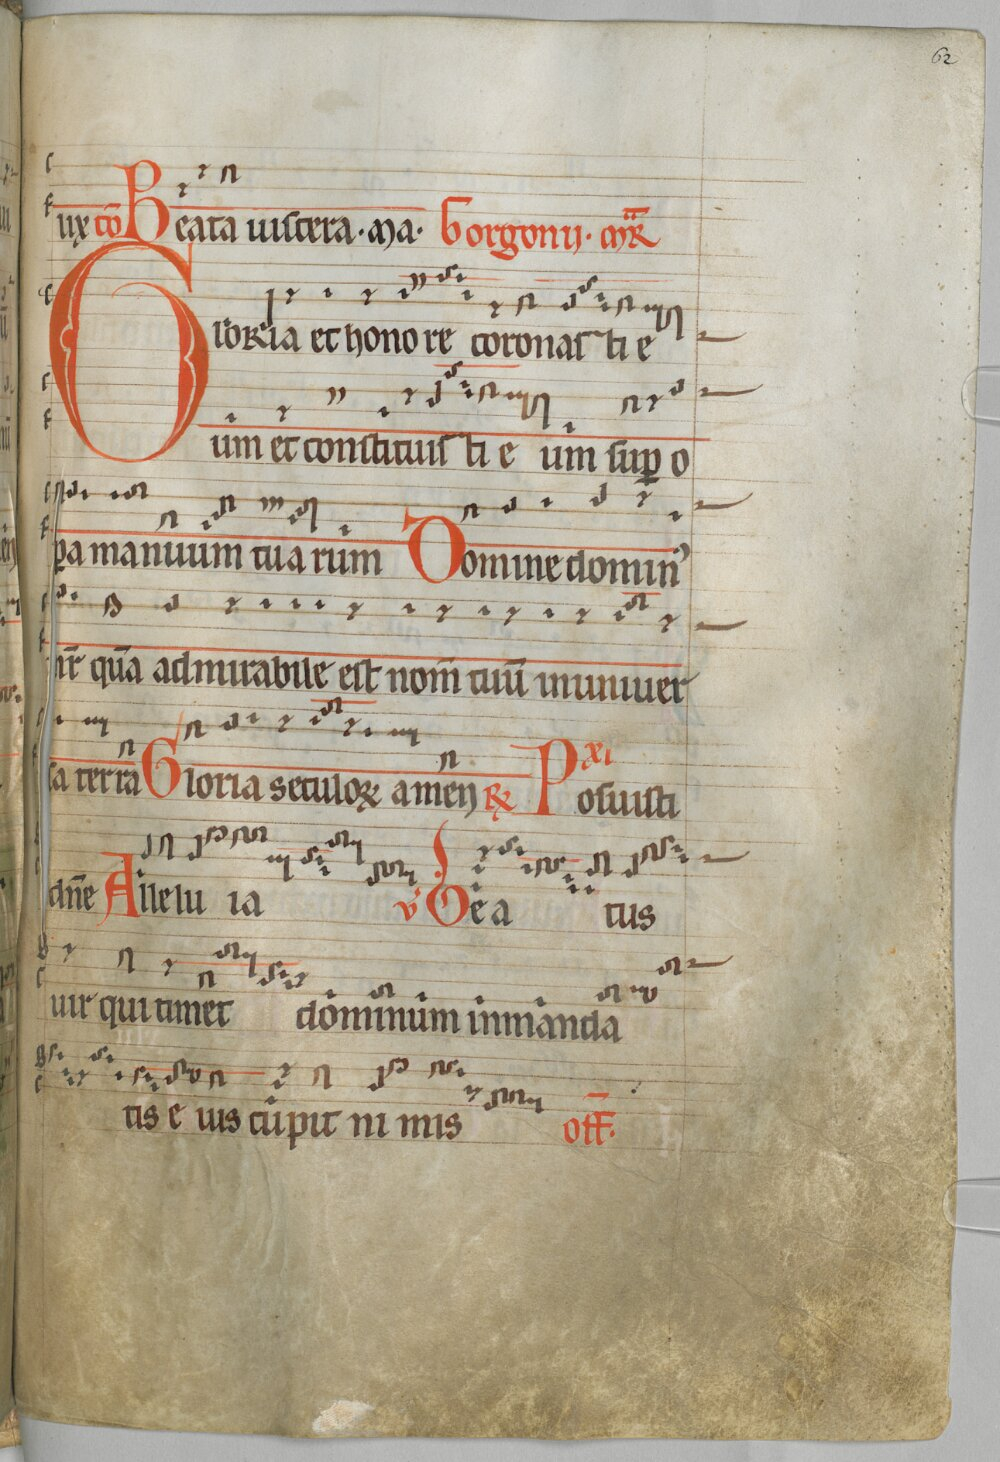 62
ux co Beata uiscera. Ma. Gorgonij. mr̄
Gloria et honore coronasti e
um et constituisti e um sup o
pa manuum tuarum Domine domin᾿
nr̄ qūa admirabile est nom̄ tuū in uniuer
sa terrā Gloria seculoꝝ amen ℟ Pxi Posuisti
dn̄e Allelu ia v̓ Bea tus
uir qui timet dominum in manda
tis e ius cupit ni mis off.